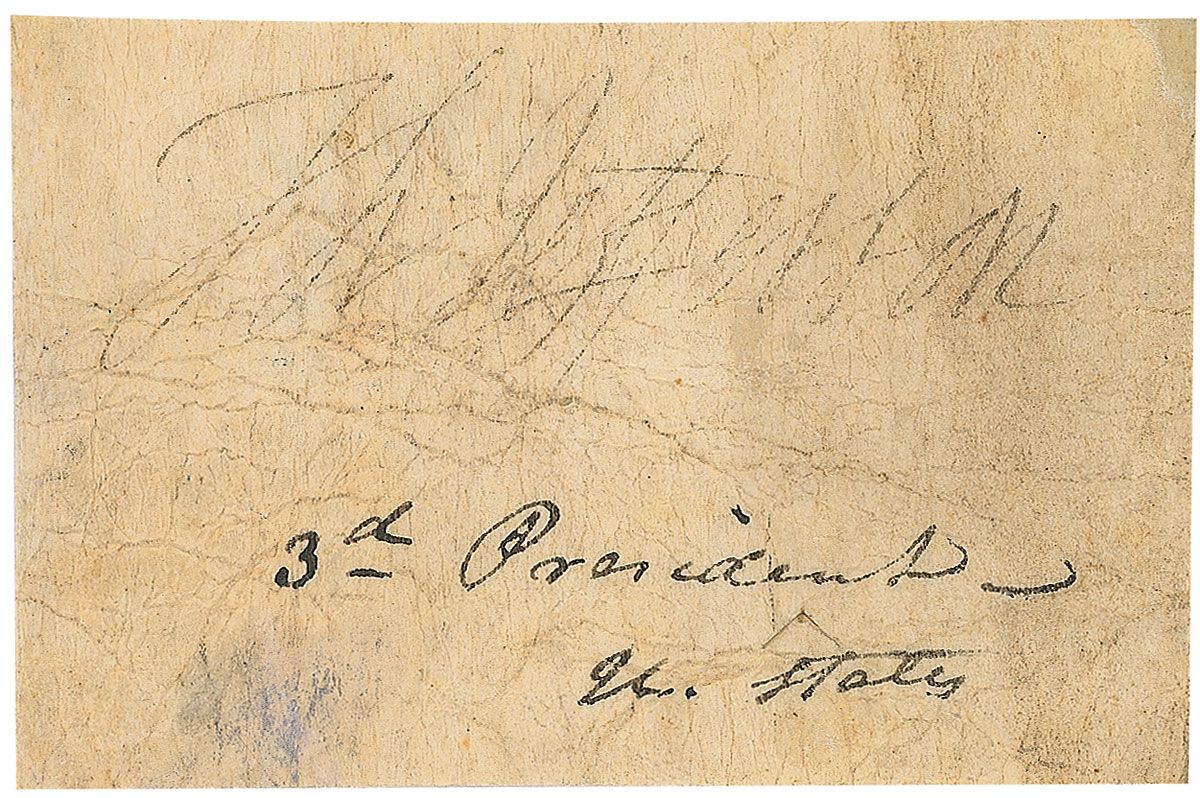 Th Jefferson
3d President
U. States